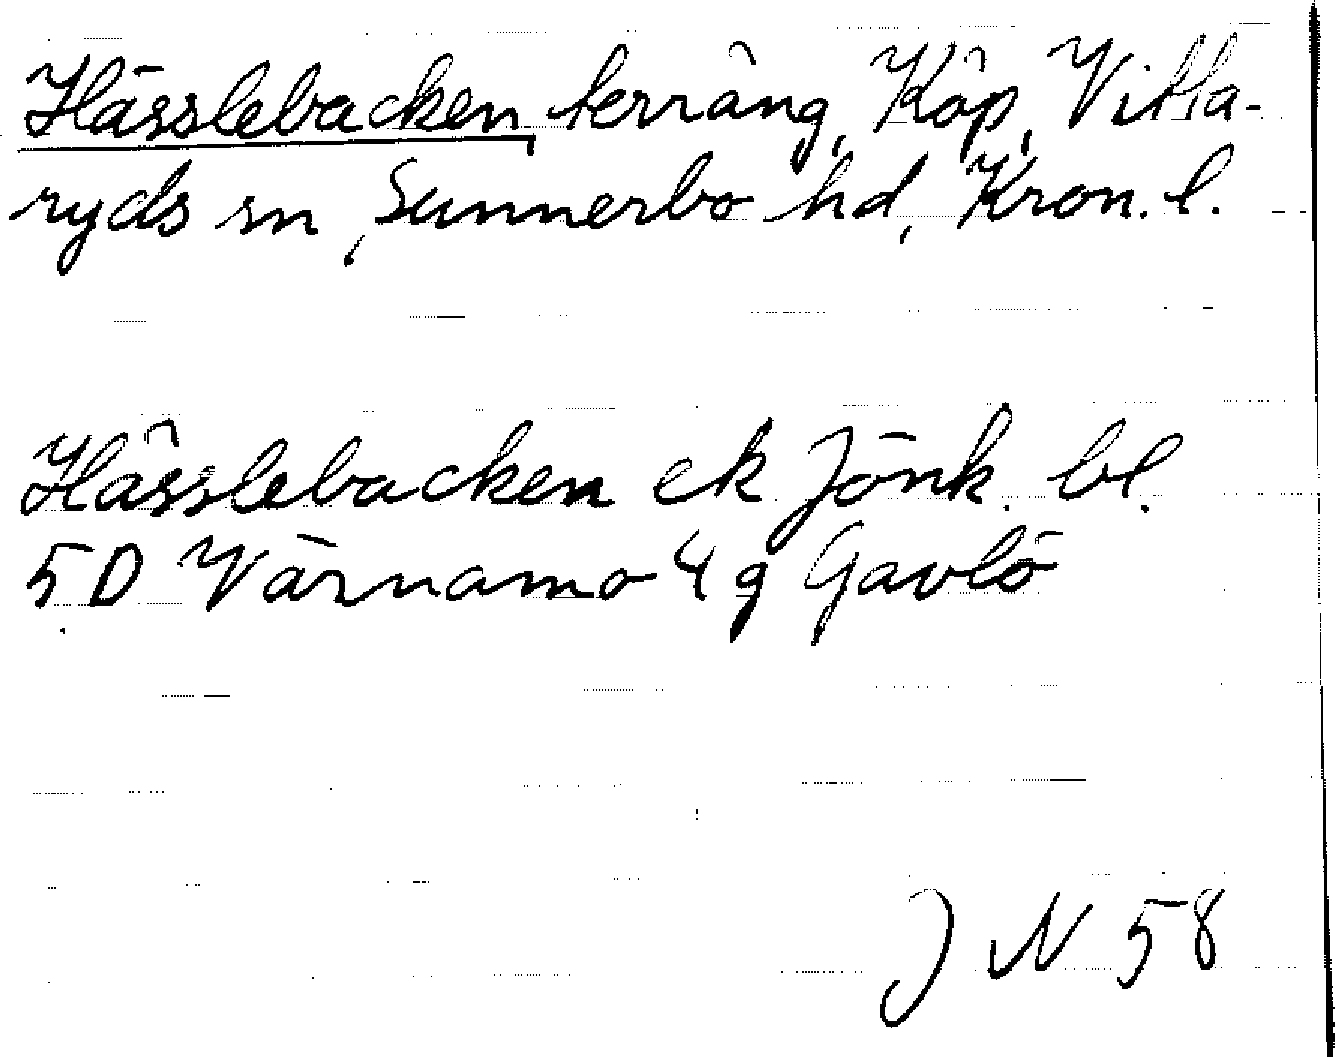 Hässlebacken, terräng, Köp, Vitta-
ryds sn, Sunnerbo hd, Kron. l.
Hässlebacken ek Jönk. bl.
5D Värnamo 4 g Gavlö
J N 58